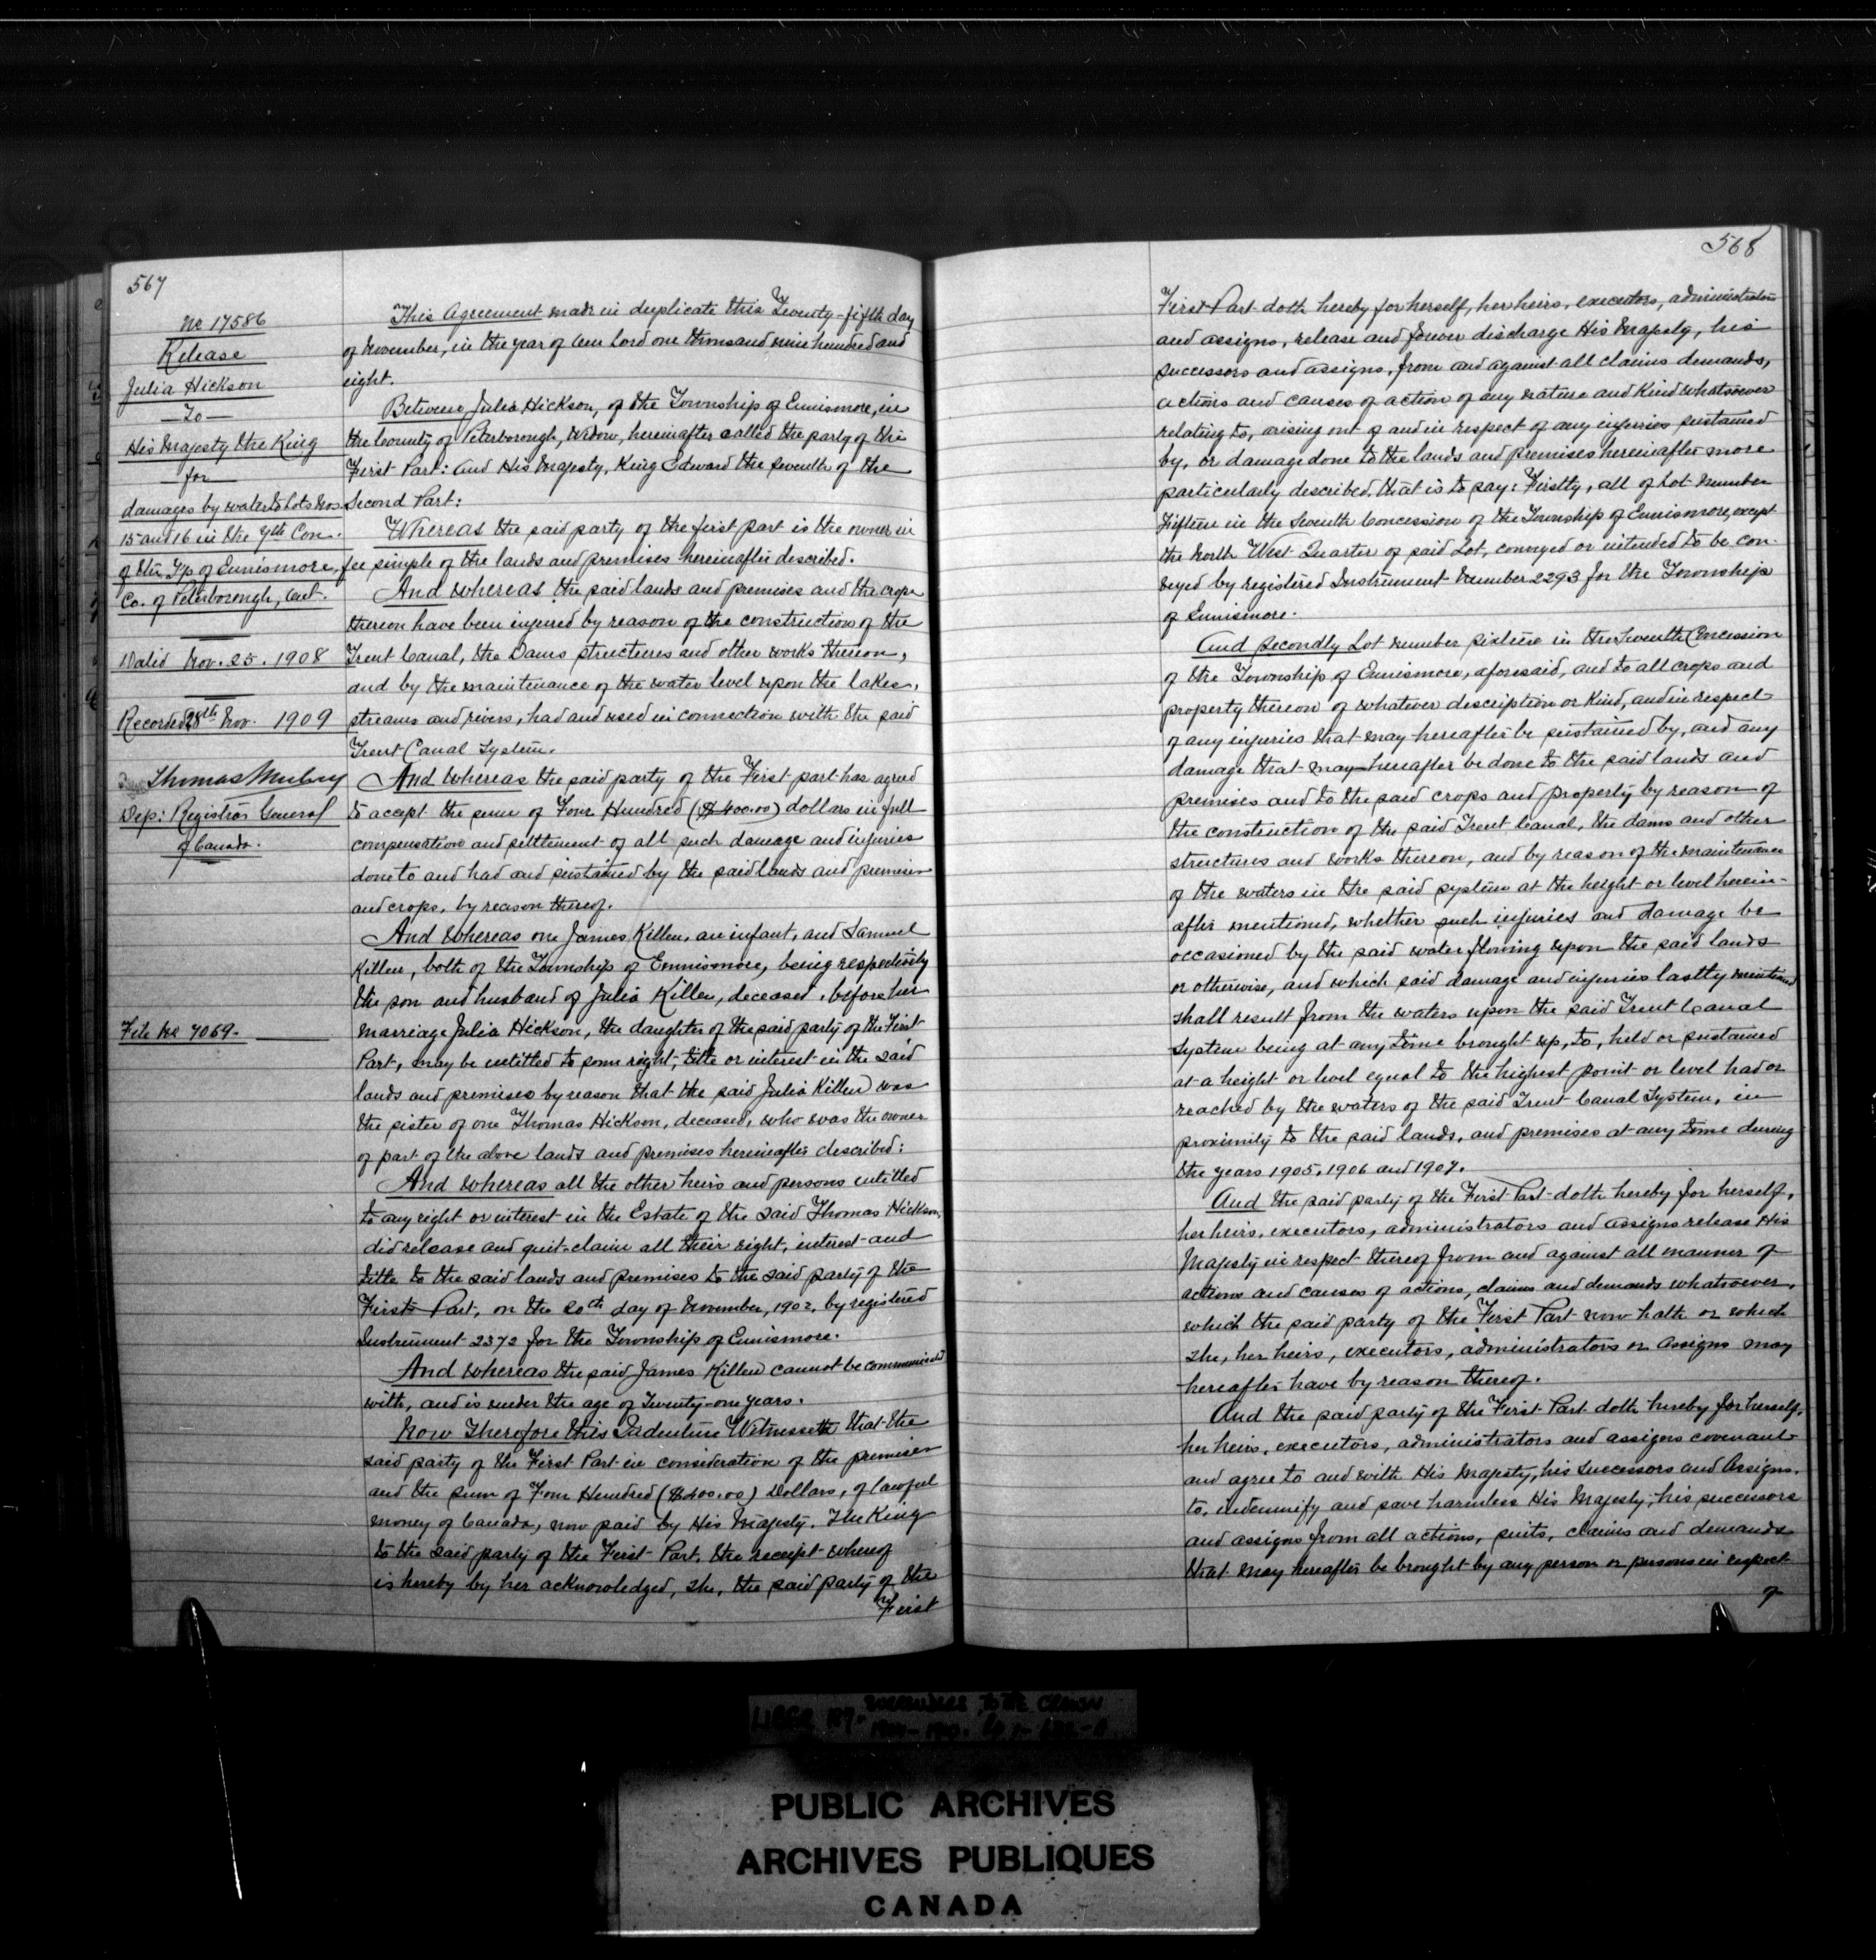 567
No 17586
Release
Julia Hickson
To
His Majesty the King
for
damages by water to Lots Nos.
15 and 16 in the 7th Con.
of the T/p of Ennismore,
Co. of Peterborough, Ont.
Dated Nov. 25. 1908
Recorded 25th Nov. 1909
Thomas Mulvey
Dep: Registrar General
of Canada.
File No 7069.
This Agreement made in duplicate this Twenty-fifth day
of November, in the year of Our Lord one thousand nine hundred and
eight.
Between Julia Hickson, of the Township of Ennismore, in
the County of Peterborough, Widow, hereinafter called the party of the
First Part: and His Majesty, King Edward the Seventh of the
Second Part:
Whereas the said party of the first part is the owner in
fee simple of the lands and premises hereinafter described.
And whereas the said lands and premises and the crops
thereon have been injured by reason of the construction of the
Trent Canal, the Dams structures and other works thereon,
and by the maintenance of the water level upon the lakes,
streams and rivers, had and used in connection with the said
Trent Canal System.
And whereas the said party of the First part has agreed
to accept the sum of Four Hundred ($400.00) dollars in full
compensation and settlement of all such damage and injuries
done to and had and sustained by the said lands and premises
and crops, by reason thereof.
And whereas one James Killen, an infant, and Samuel
Killen, both of the Township of Ennismore, being respectively
the son and husband of Julia Killen, deceased, before her
marriage Julia Hickson, the daughter of the said party of the First
Part, may be entitled to some right, title or interest in the said
lands and premises by reason that the said Julia Killen was
the sister of one Thomas Hickson, deceased, who was the owner
of part of the above lands and premises hereinafter described:
And whereas all the other heirs and persons entitled
to any right or interest in the Estate of the said Thomas Hickson,
did release and quit-claim all their right, interest and
title to the said lands and premises to the said party of the
First Part, on the 20th day of November, 1902, by registered
Instrument 2372 for the Township of Ennismore.
And whereas the said James Killen cannot be communicated
with, and is under the age of Twenty-one years.
Now Therefore this Indenture Witnesseth that the
said party of the First Part in consideration of the premises
and the sum of Four Hundred ($400.00) Dollars, of lawful
money of Canada, now paid by His Majesty. The King
to the said party of the First Part, the receipt whereof
is hereby by her acknowledged, she, the said party of the
First
568
First Part doth hereby for herself, her heirs, executors, administrators
and assigns, release and forever discharge His Majesty, his
successors and assigns, from and against all claims demands,
actions and causes of action of any nature and kind whatsoever
relating to, arising out of and in respect of any injuries sustained
by, or damage done to the lands and premises hereinafter more
particularly described, that is to say: Firstly, all of Lot Number
Fifteen in the Seventh Concession of the Township of Ennismore, except
the North West Quarter of said Lot, conveyed or intended to be con-
veyed by registered Instrument Number 2293 for the Township
of Ennismore.
And Secondly Lot number sixteen in the Seventh Concession
of the Township of Ennismore, aforesaid, and to all crops and
property thereon of whatever description or kind, and in respect
of any injuries that may hereafter be sustained by, and any
damage that may hereafter be done to the said lands and
premises and to the said crops and property by reason of
the construction of the said Trent Canal, the dams and other
structures and works thereon, and by reason of the maintenance
of the waters in the said system at the height or level herein-
after mentioned, whether such injuries and damage be
occasioned by the said water flowing upon the said lands
or otherwise, and which said damage and injuries lastly mentioned
shall result from the waters upon the said Trent Canal
System being at any time brought up, to, held or sustained
at a height or level equal to the highest point or level had or
reached by the waters of the said Trent Canal System, in
proximity to the said lands, and premises at any time during
the years 1905, 1906 and 1907.
And the said party of the First Part doth hereby for herself,
her heirs, executors, administrators and assigns release His
Majesty in respect thereof from and against all manner of
actions and causes of actions, claims and demands whatsoever,
which the said party of the First Part now hath or which
she, her heirs, executors, administrators or assigns may
hereafter have by reason thereof.
And the said party of the First Part doth hereby for herself,
her heirs, executors, administrators and assigns covenant
and agree to and with His Majesty, his successors and Assigns,
to, indemnify and save harmless His Majesty, his successors
and assigns from all actions, suits, claims and demands
that may hereafter be brought by any person or persons in respect
of
SURRENDERS TO THE CROWN
PUBLIC ARCHIVES
ARCHIVES PUBLIQUES
CANADA